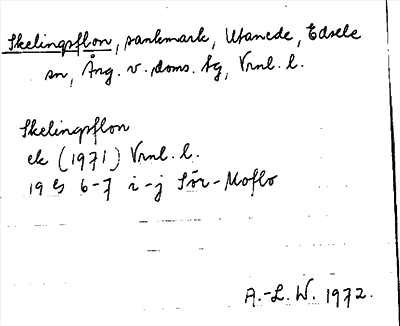 Skelingsflon, sankmark, Utanede, Edsele
sn, Ång. v. doms. tg, Vrnl. l.
Skelingsflon
ek (1971) Vrnl. l.
19 G 6-7 i-j Sör-Moflo
A.-L. W. 1972.